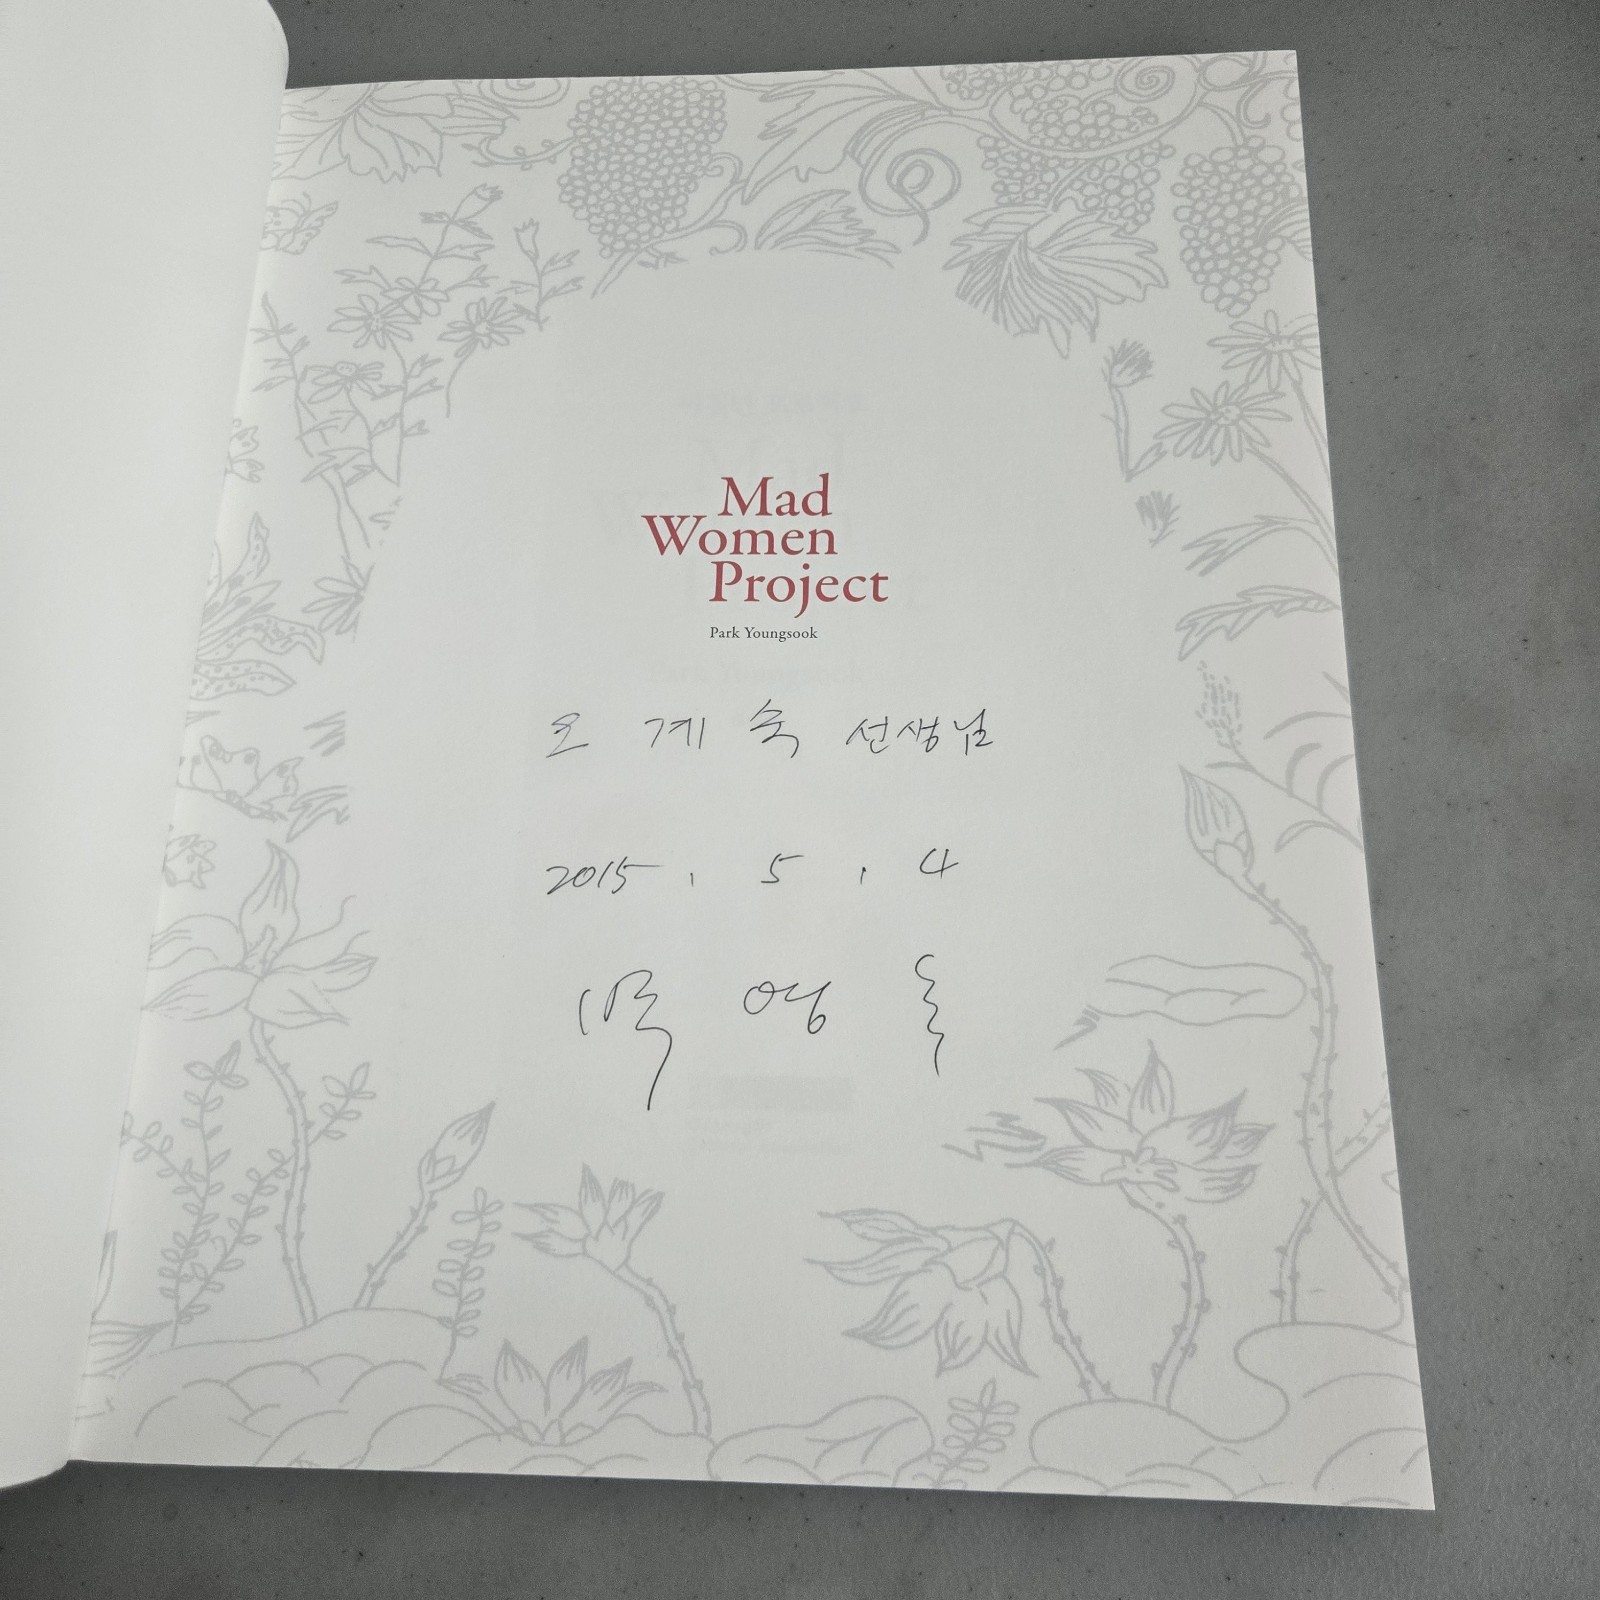 Mad
Women
Project
Park Youngsook
오 계 숙 선생님
2015 . 5 . 4
박 영 숙